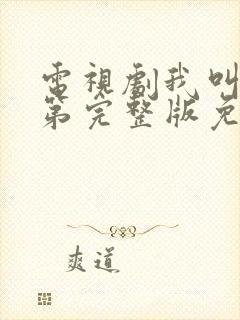 電視劇我叫
第完整版免
爽道